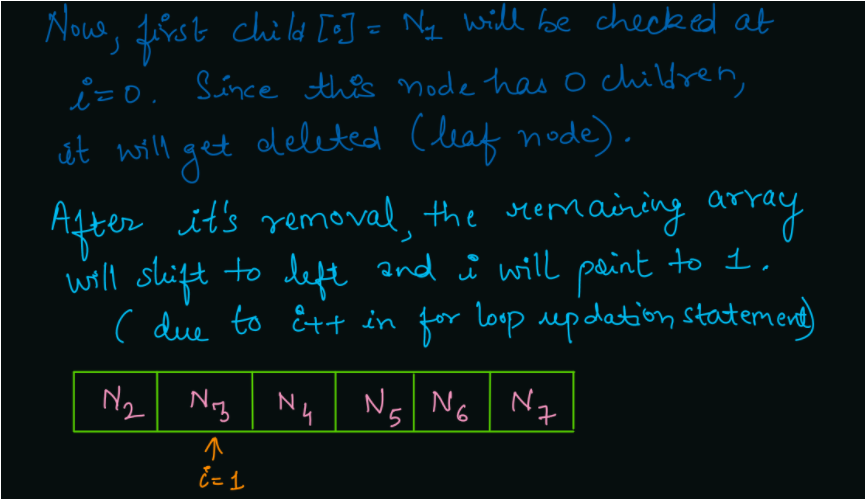 Now, first child [0] = N1 will be checked at
i=0. Since this node has 0 children,
it will get deleted (leaf node).
After it's removal, the remaining array
will shift to left and i will point to 1.
( due to i++ in for loop updation statement)
N2 N3 N4 N5 N6 N7
↑
i=1